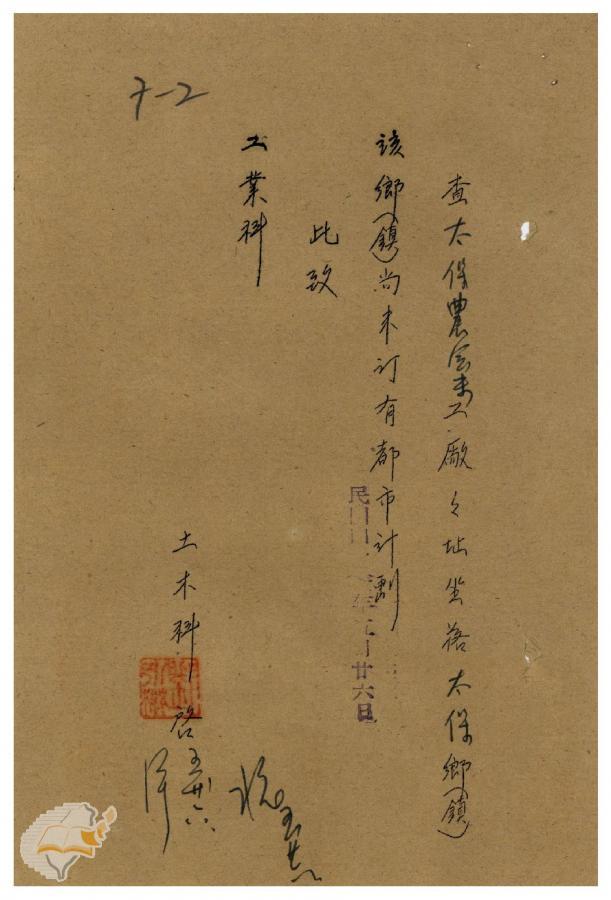 7-2
查太保農会米工廠之址坐落太保鄉(鎮)
該鄉(鎮)尚未訂有都市計劃
此致
工業科
土木科 啓
五廿六